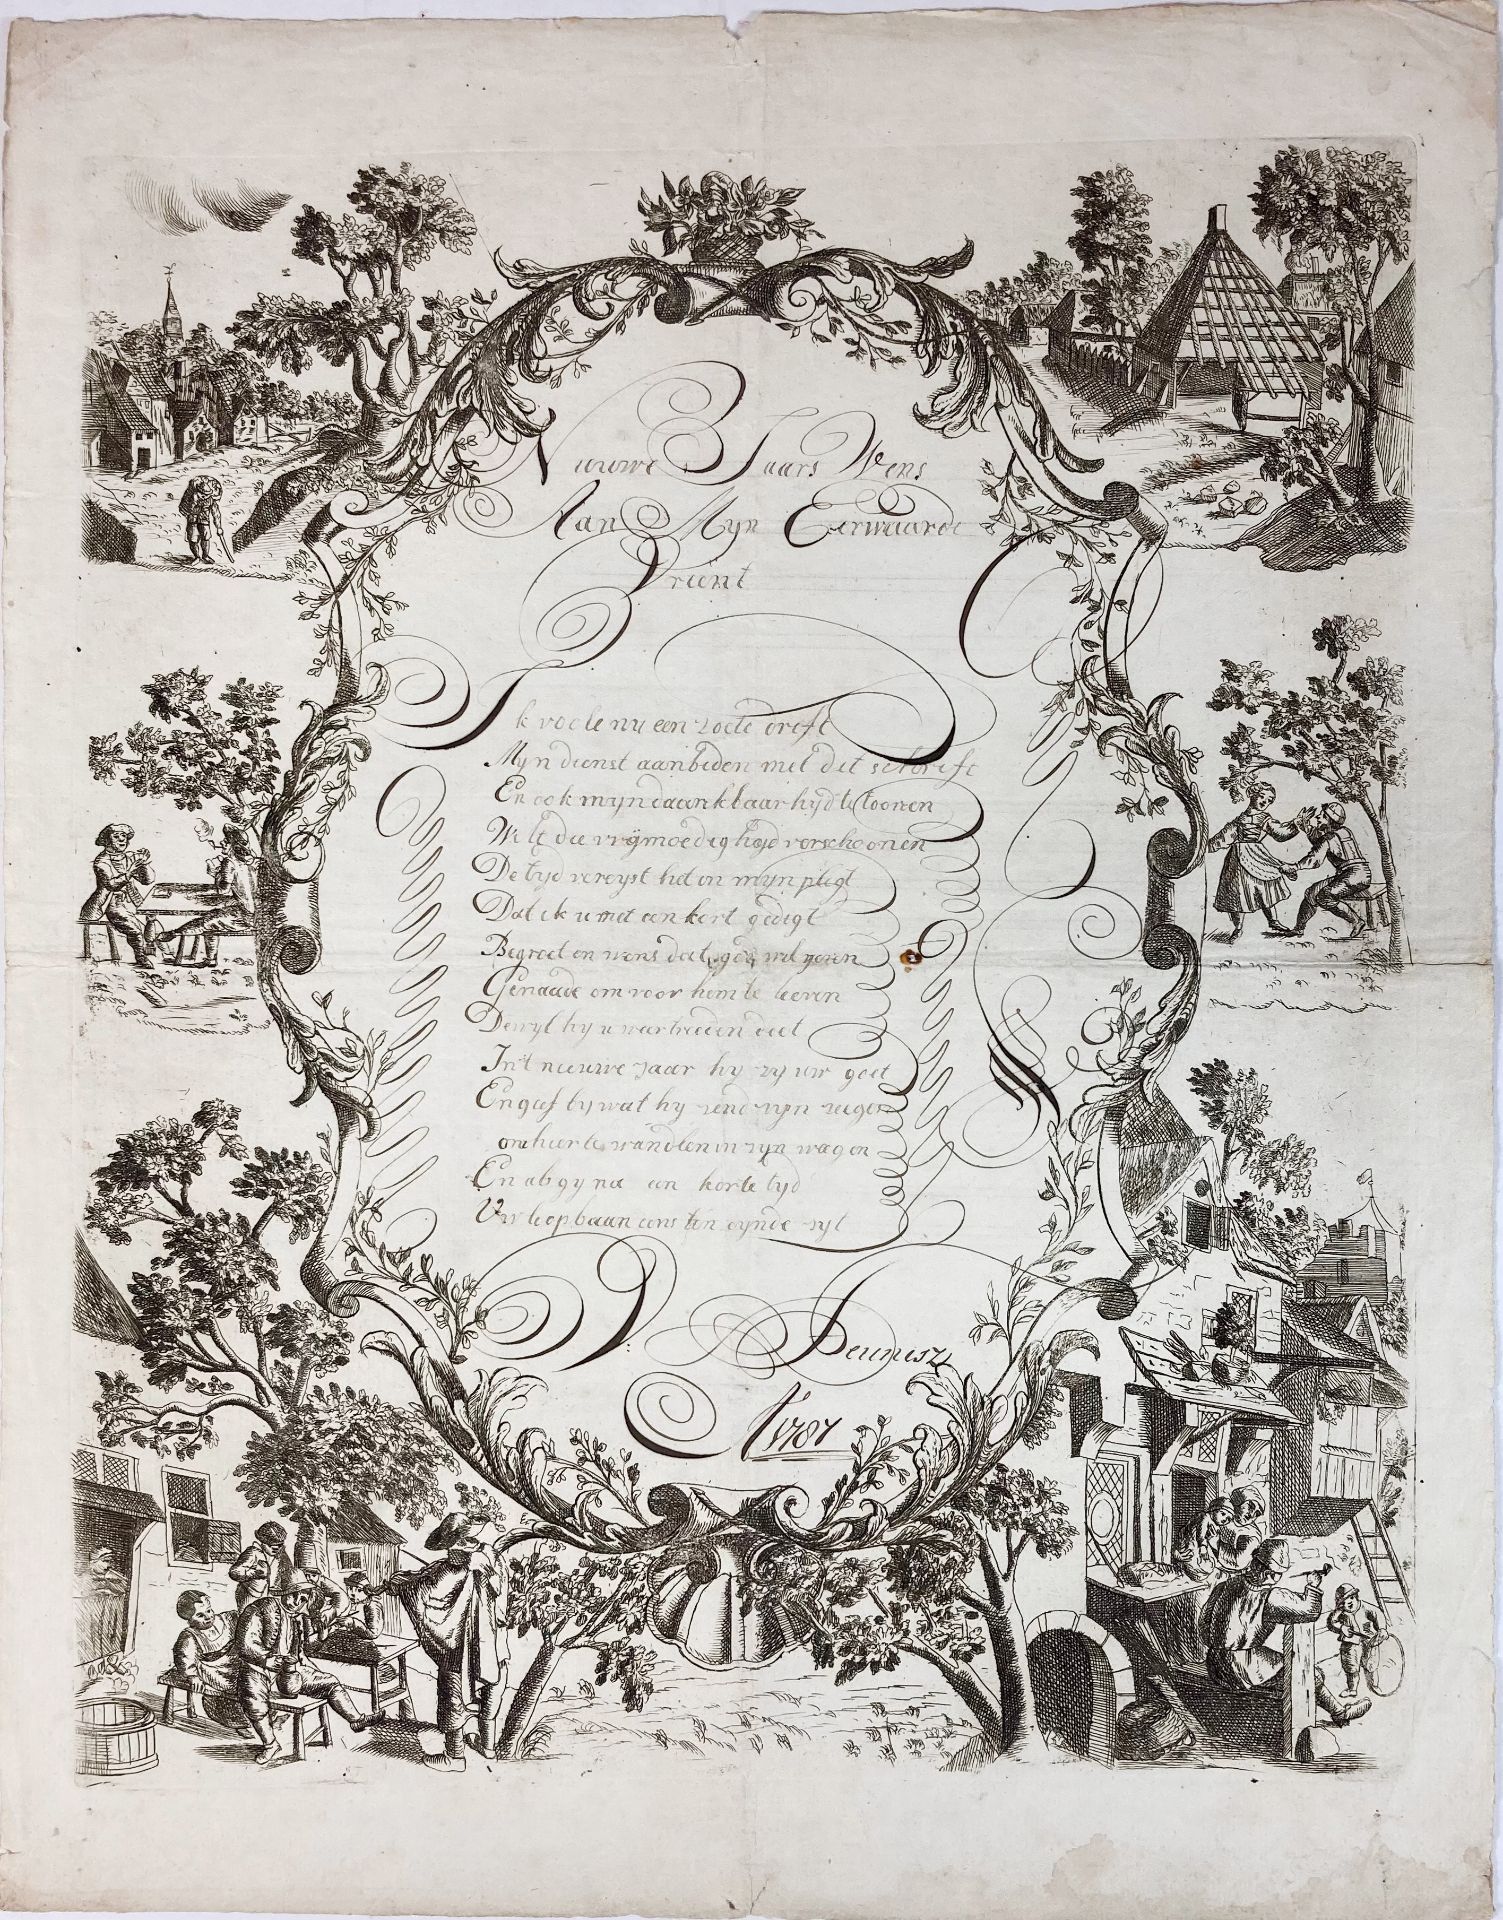 Nieuwe Jaars Wens
Aan Myn Eerwaarde
Vrient
Ik voele nu een zoete drift
Myn dienst aanbieden met dit schrift
En ook myn daankbaarhyd te toonen
Wilt die vrijmoedighyd verschoonen
De tyd vereyst het en myn pligt
Dat ik u met een kort gedigt
Begroet en wens dat god wil geven
Genaade om voor hem te leeven
Dewyl hy u vartreeden doet
In't nieuwe Jaar hy zy uw goet
En geef by wat hy zend zyn zeegen
om hier te wandlen in zyn wegen
En als gy na een korte tyd
Uw loopbaan eens ten eynde syt
Teunisz
1787